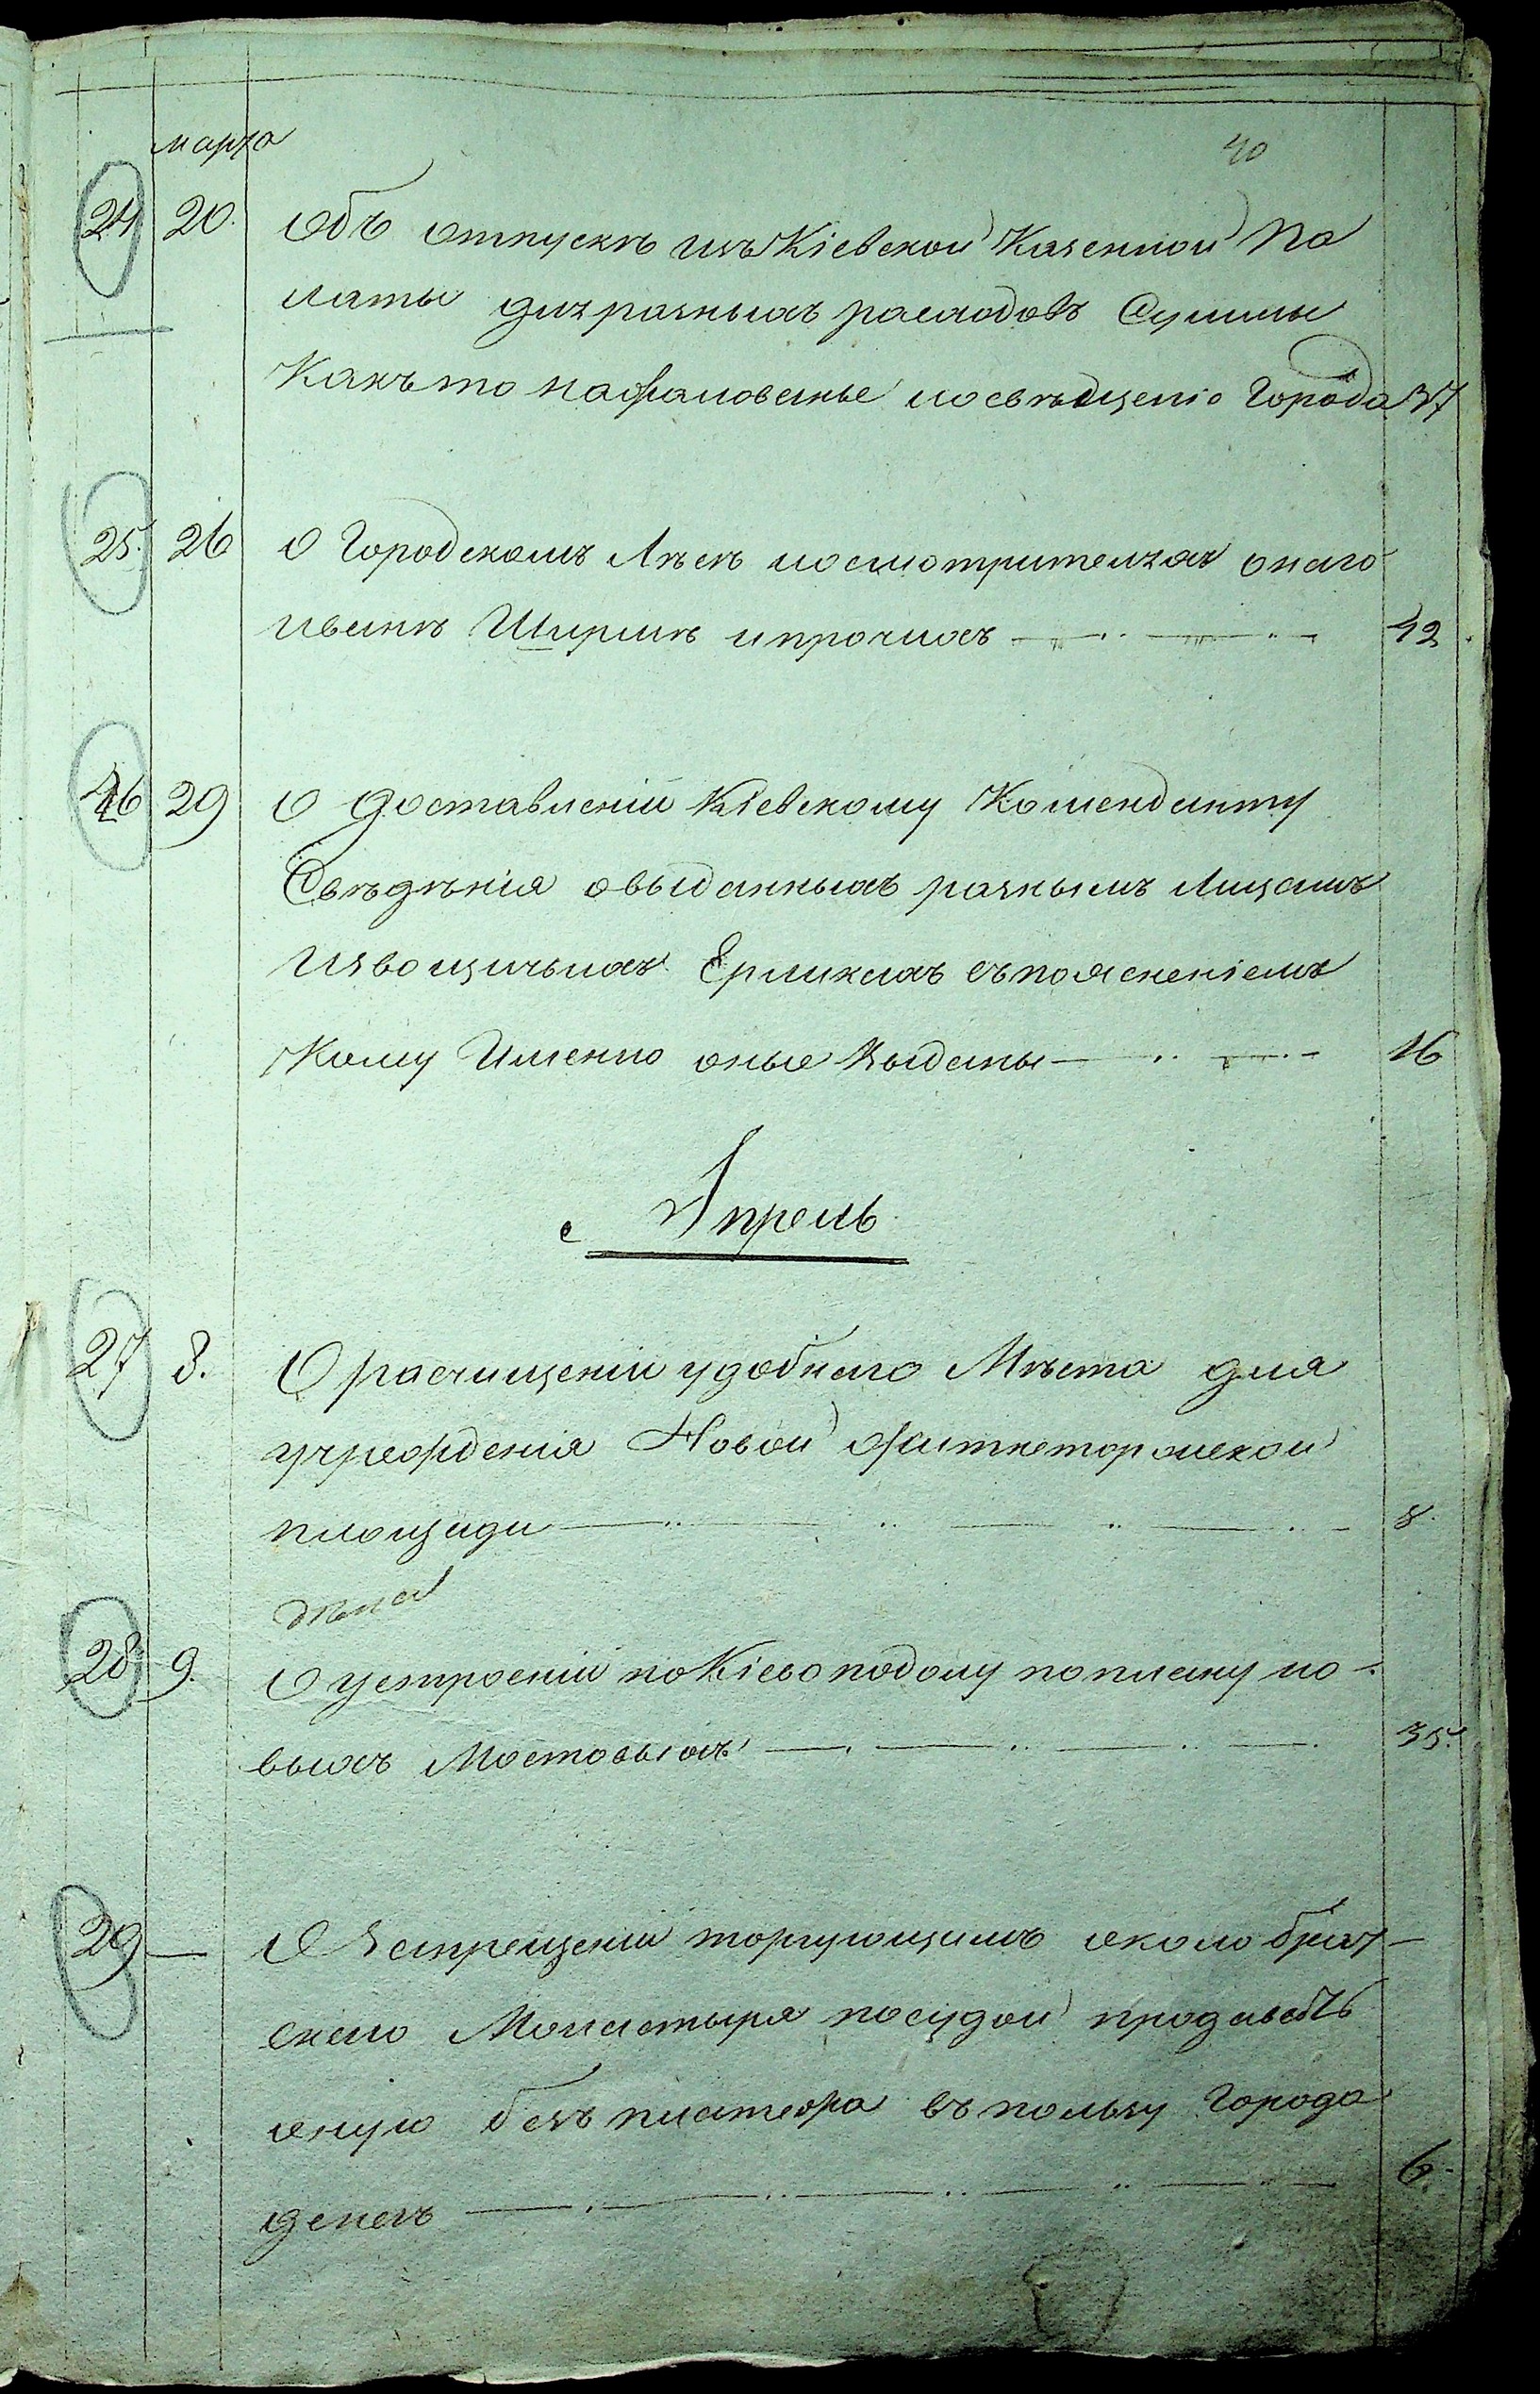 марта
40
24 20. Объ отпускѣ изъ Кіевской Казенной Па
латы для разныхъ расходовъ Суммы
Какъ то на жалованье и освѣщеніе Города 37
25. 26 О Городскомъ Лѣсѣ и осмотрителяхъ онаго
Иванѣ Ширинѣ и прочихъ 42
26 29 О доставленіи Кіевскому Коменданту
Свѣдѣнія о выданныхъ разнымъ Лицамъ
Извощичьихъ Ерлыкахъ съ поясненіемъ
Кому Именно оные Выданы 16
Апрель
27 8. О расчищеніи удобнаго Мѣста для
учрежденія Новой Житнеторжской
площади 8.
дѣла
28 9. О устроеніи по Кіевоподолу по плану но
выхъ Мостовыхъ 35.
29 — О Запрещеніи торгующимъ около брат-
скаго Монастыря посудой продавать
оную безъ платежа въ пользу Города
денегъ 6.